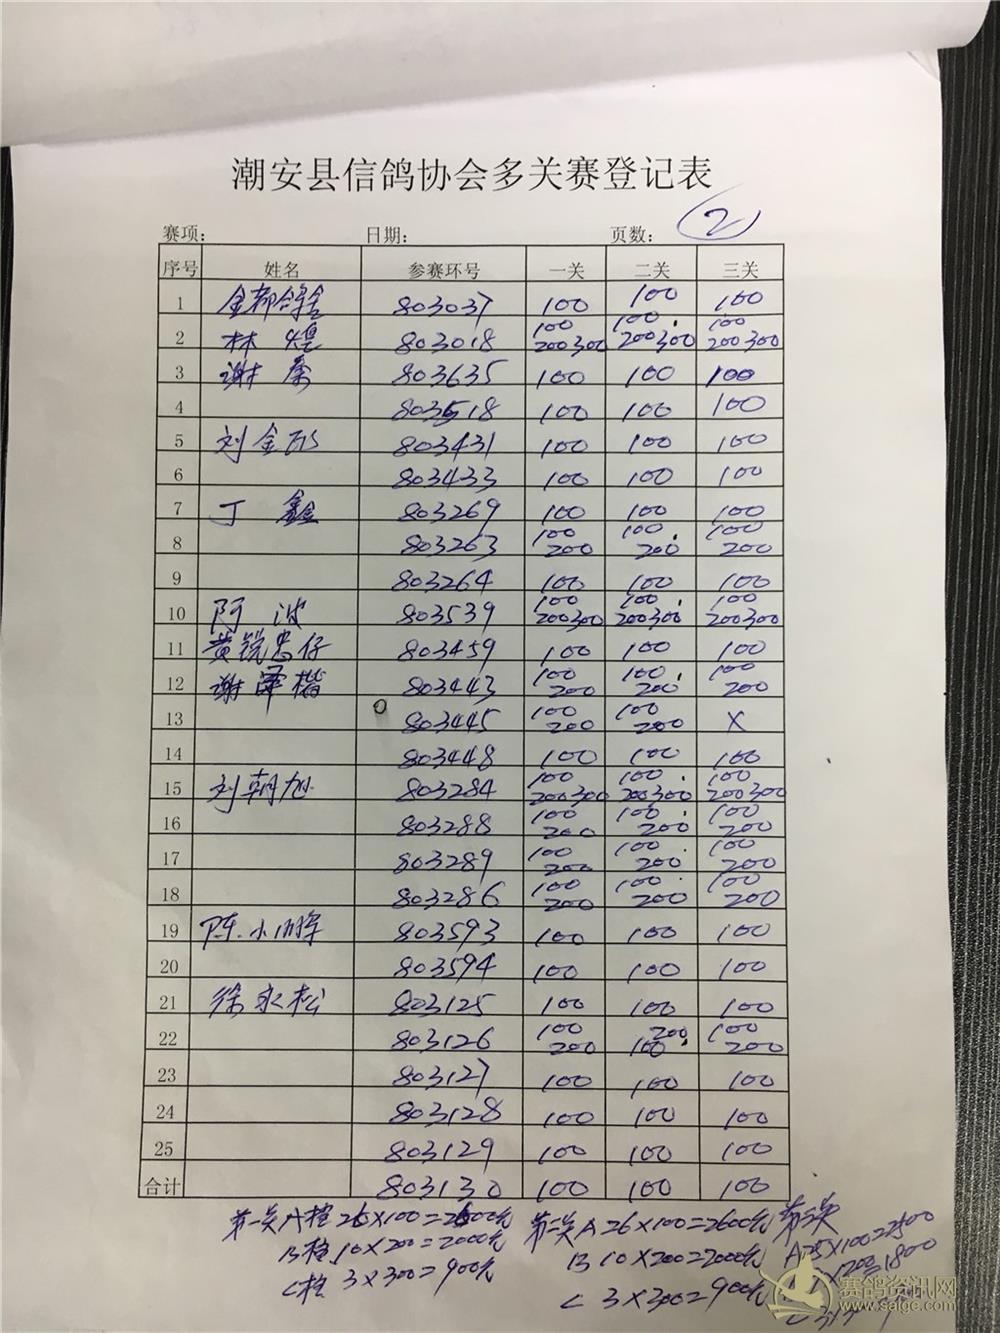 潮安县信鸽协会多关赛登记表
赛项: 日期: 页数: 2
序号 姓名 参赛环号 一关 二关 三关
1 金都鸽舍 803037 100 100 100
2 林煜 803018 100 200 300 100 200 300 100 200 300
3 谢 803635 100 100 100
4 803518 100 100 100
5 刘金 803431 100 100 100
6 803433 100 100 100
7 丁鑫 803269 100 100 100
8 803263 100 200 100 200 100 200
9 803264 100 100 100
10 阿波 803539 100 200 300 100 200 300 100 200 300
11 黄锐忠仔 803459 100 100 100
12 谢泽楷 803443 100 200 100 200 100 200
13 803445 100 200 100 200 X
14 803448 100 100 100
15 刘朝旭 803284 100 200 300 100 200 300 100 200 300
16 803288 100 200 100 200 100 200
17 803289 100 200 100 200 100 200
18 803286 100 200 100 200 100 200
19 陈小鹏 803593 100 100 100
20 803594 100 100 100
21 徐永松 803125 100 100 100
22 803126 100 200 200 100 100 200
23 803127 100 100 100
24 803128 100 100 100
25 803129 100 100 100
合计 803130 100 100 100
第一关A栏 26×100=2600元
B栏 10×200=2000元
C栏 3×300=900元
第二关A 26×100=2600元
B 10×200=2000元
C 3×300=900元
第三关
A 25×100=2500
×200=1800
赛鸽资讯网
www.saige.com